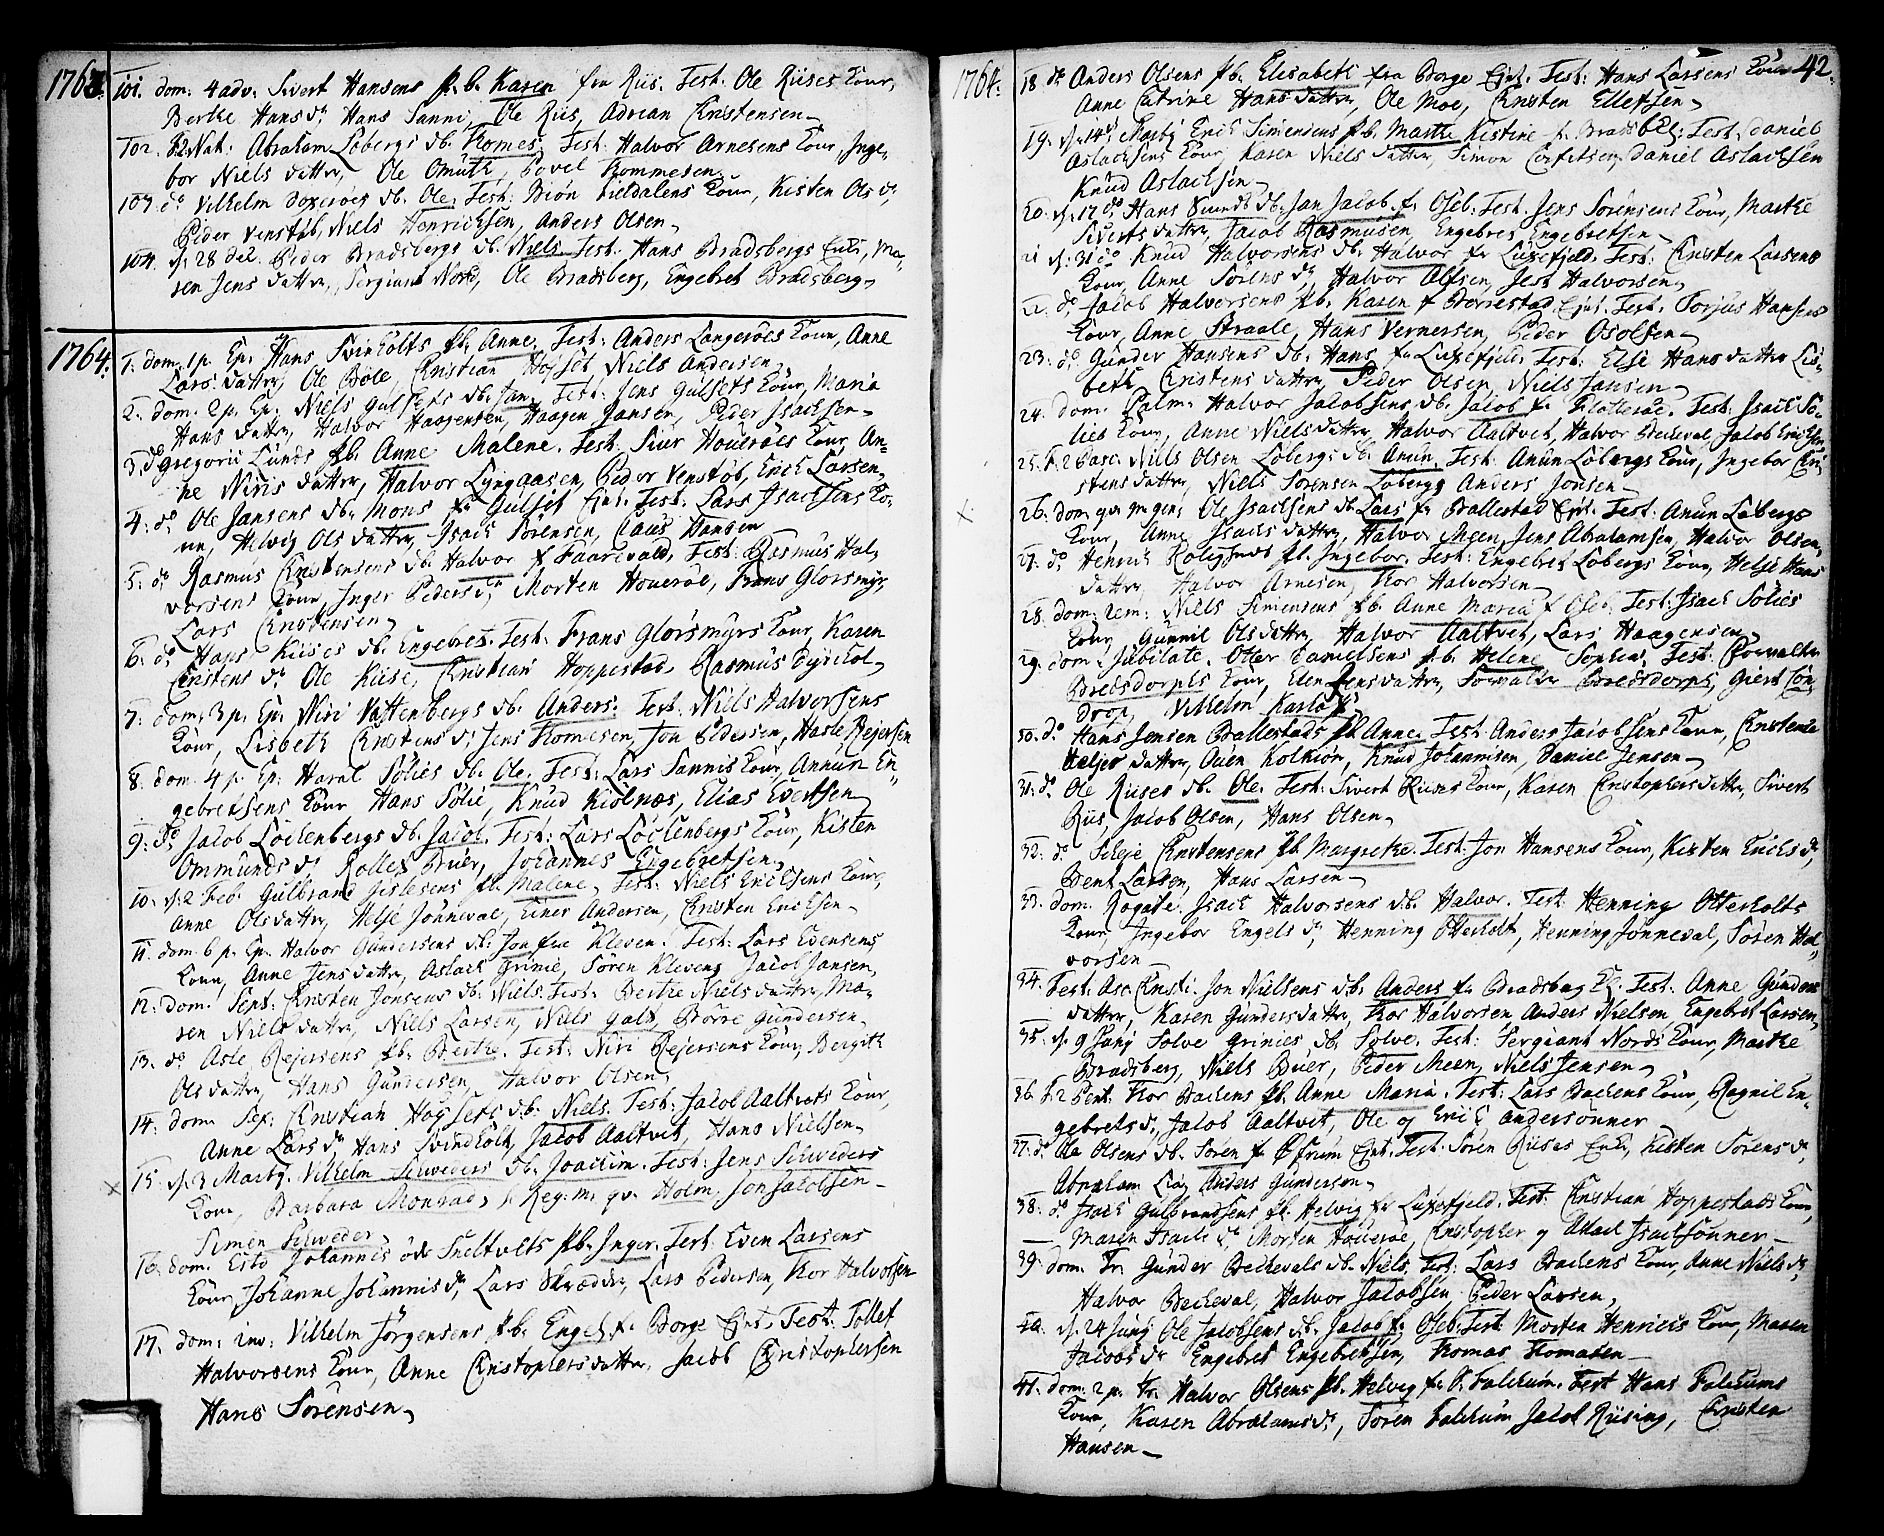 1763.
101. dom: 4 adv: Sivert Hansens p. b. Karen fra Riis. Test: Ole Riises Kone,
Berthe Hans dr Hans Sanni, Ole Riis, Adrian Christensen
102. F. 2 Nat: Abraham Løbergs db. Thomes. Test: Halvor Arnesens Kone, Inge-
bor Niels datter, Ole Omuth, Povel Thommesen
103. do Vilhelm db. Ole. Test: Biøn Kone, Kisten Ols dr,
Peder Venstøb, Niels Henrichsen, Anders Olsen
104. d. 28 dec. Peder Bradsbergs db. Niels Test: Hans Bradsbergs Enke, Ma-
ren Jens datter, Sergiant Nord, Ole Bradsberg, Engebret Bradsberg
1764.
1. dom: 1 p. Ep: Hans Svinholts pb. Anne. Test: Anders Langerøes Kone, Anne
Lars datter, Ole Bøle, Christian Høgset Niels Andersen
2. dom. 2 p. Ep: Niels Gulsets db. Jan. Test: Jens Gulsets Kone, Maria
Hans datter, Halvor Haagensen, Haagen Jansen, Peder Isachsen
3. do Gregorii Lunds pb. Anne Malene. Test: Siver Houerøes Kone, An-
ne Niris datter, Halvor Lyngaasen, Peder Venstøb, Erich Larsen
4. do Ole Jansens db. Mons fr Gulset Ejet. Test: Lars Isachsens Ko-
ne, Helvig Ols datter, Isach Sørensen, Claus Hansen
5. do Rasmus Christensens db. Halvor f. Faarevald, Test: Rasmus Hal-
vorsens Kone, Inger Peders dr, Morten Houerøe, Frans Glorsmyr,
Lars Christensen
6. do Hans Riises db. Engebret. Test: Frans Glorsmyrs Kone, Karen
Christens dr Ole Riise, Christian Hoppestad, Rasmus
7. dom: 3 p. Ep: Niri Vattenbergs db. Anders. Test: Niels Halvorsens
Kone, Lisbeth Christens dr Jens Thomesen, Jon Pedersen, Hasle Rejersen
8. dom: 4 p. Ep: Haral Sølies db. Ole. Test: Lars Sannis Kone, Annun En-
gebretsens Kone Hans Sølie, Knud Kiolnæs, Elias Evertsen
9. do Jacob Lochenbergs db. Jacob. Test: Lars Lochenbergs Kone, Kisten
Ommunds dr Rollef Bver, Johannes Engebretsen
10. d. 2 Feb: Gulbrand Gislesens pb. Malene, Test: Niels Erichsens Kone,
Anne Olsdatter, Helje Jønneval, Einer Andersen, Christen Erichsen
11. dom 6 p. Ep. Halvor Gundersens db. Jon fra Kleven. Test: Lars Evensens
Kone, Anne Jensdatter, Aslach Grinie, Søren Kleven Jacob Jansen
12. dom. Sept: Christen Jonsens db. Niels. Test: Berthe Nielsdatter, Ma-
ren Nielsdatter, Niels Larsen, Niels Galt, Børre Gundersen
13. do Asle Rejersens pb. Berthe. Test: Niri Rejersens Kone, Bergith
Olsdatter, Hans Gundersen, Halvor Olsen
14. dom Sex: Christian Høgsets db: Niels. Test: Jacob Aaltvets Kone,
Anne Lars dr, Hans Svindholt, Jacob Aaltvet, Hans Nielsen
15. d. 3 Marty. Vilhelm Schweders db. Joachim. Test: Jens Schweders
Kone, Barbara Monrad, Reg: m: qv. Holm, Jon Jacobsen
Simen Schweder
16. dom: Esto Johannis öde Sneltvets pb. Inger. Test: Even Larsens
Kone, Johanne Johannis dr, Lars Skrædder, Lars Pedersen, Thor Halvorsen
17. dom: inv: Vilhelm Jørgensens pb. Engel fr. Borge Ejet. Test: Tollef
Halvorsens Kone, Anne Christophersdatter, Jacob Christophersen
Hans Sørensen
1764.
42.
18. do Anders Olsens pb. Elisabeth fra Borge Ejet. Test: Hans Larsens Kone
Anne Catrine Hansdatter, Ole Moe, Christen Ellefsen
19. d. 14de Marty Erich Simensens pb. Marthe Kistine f. Test: Daniel
Aslachsens Kone, Karen Nielsdatter, Simon Daniel Aslachsen
Knud Aslachsen
20. d. 17 do Hans Knuds db. Jan Jacob f. Oseb. Test: Jens Sørensens Kone, Marthe
Sivertsdatter, Jacob Rasmusen, Engebret Engebretsen
21. d. 31 do Knud Halvorsens db. Halvor fr Luxefjeld. Test: Christen Larsens
Kone, Anne Sørens dr, Halvor Olfsen, Jest Halvorsen
22. do Jacob Halvorsens pb. Karen f Borrestad Ejet. Test: Torjus Hansens
Kone, Anne Straale, Hans Vernersen, Peder Osolsen
23. do Gunder Hansens db. Hans fr Luxefjeld. Test: Else Hansdatter Lis-
beth Christensdatter, Peder Olsen, Niels Jansen
24. dom. Palm: Halvor Jacobsens db. Jacob fr. Test: Isach Sø-
lies Kone, Anne Nielsdatter, Halvor Aaltvet, Halvor Becheval, Jacob Erichsen
25. F. 2 Pasc. Niels Olsen Løbergs db. Anun. Test: Anun Løbergs Kone, Ingebor Chri-
stensdatter, Niels Sørensen Løberg, Anders Jonsen
26. dom: qvasimgen: Ole Isachsens db. Lars fr Ballestad Ejet. Test: Anun Løbergs
Kone, Anne Isachsdatter, Halvor Meen, Jens Abrahamsen, Halvor Olsen,
27. do Henrich Roligheds pb. Ingebor. Test: Engebret Løbergs Kone, Helje Hans
datter, Halvor Arnesen, Thor Halvorsen
28. dom: 2 em: Niels Simensens pb. Anne Maria f Oseb. Test: Isach Sølies
Kone, Gunnil Olsdatter, Halvor Aaltvet, Lars Haagensen
29. dom: Jubilate. Otter Danielsens pb. Helene Sophia. Test: Thorvalter
Bredsdorphs Kone, Elen Jensdatter, Bredsdorph, Giert Con-
drop, Vilhelm
30. do Hans Jensen Ballestads pb. Anne. Test: Anders Jacobsens Kone, Christence
Heljes datter, Auen Kolkiøn, Knud Johannisen, Daniel Jensen
31. do Ole Riises db. Ole. Test: Sivert Riises Kone, Karen Christophersdatter, Sivert
Riis, Jacob Olsen, Hans Olsen
32. do Christensens pb. Margrethe. Test: Jon Hansens Kone, Kisten Erichs dr,
Bent Larsen, Hans Larsen
33. dom. Rogate. Isach Halvorsens db. Halvor. Test: Henning Otterholts
Kone, Ingebor Engels dr, Henning Otterholt, Henning Jønneval, Søren Hal-
vorsen
34. Fest: Asc. Christi. Jon Nielsens db. Anders fr. Bradsberg E. Test: Anne Gunders
datter, Karen Gundersdatter, Thor Halvorsen Anders Nielsen Engebret Larsen,
35. d. 9 Junj Solve Grinies db. Solve. Test: Sergiant Nords Kone, Marthe
Bradsberg, Niels Bver, Peder Meen, Niels Jensen
36. F. 2 Pent. Thor Bachens pb. Anne Maria. Test: Lars Bachens Kone, Ragnil En-
gebrets dr, Jacob Aaltvet, Ole og Erich Anderssønner
37. do Ole Olsens db. Søren fr Ejet. Test: Søren Riises Enke, Kisten Sørens dr,
Abraham Lie, Anders Gundersen
38. do Isach Gulbrandsens pb. Helvig fr Luxefjeld. Test: Christian Hoppestads Kone,
Maren Isachs dr, Morten Houerøe, Christopher og Aslach Isachsønner
39. dom. Tr: Gunder Bechevals db. Niels. Test: Lars Bachens Kone, Anne Niels dr,
Halvor Becheval, Halvor Jacobsen Peder Larsen,
40. d. 24 Junj Ole Jacobsens db. Jacob fr. Oseb. Test: Morten Henrichs Kone, Maren
Jacobs dr Engebret Engebretsen, Thomas Thomasen
41. dom: 2 p. Tr. Halvor Olsens pb. Helvig fr. Ø. Falchum. Test Hans Falchums
Kone, Karen Abrahams dr, Søren Falchum Jacob Riising, Christen
Hansen